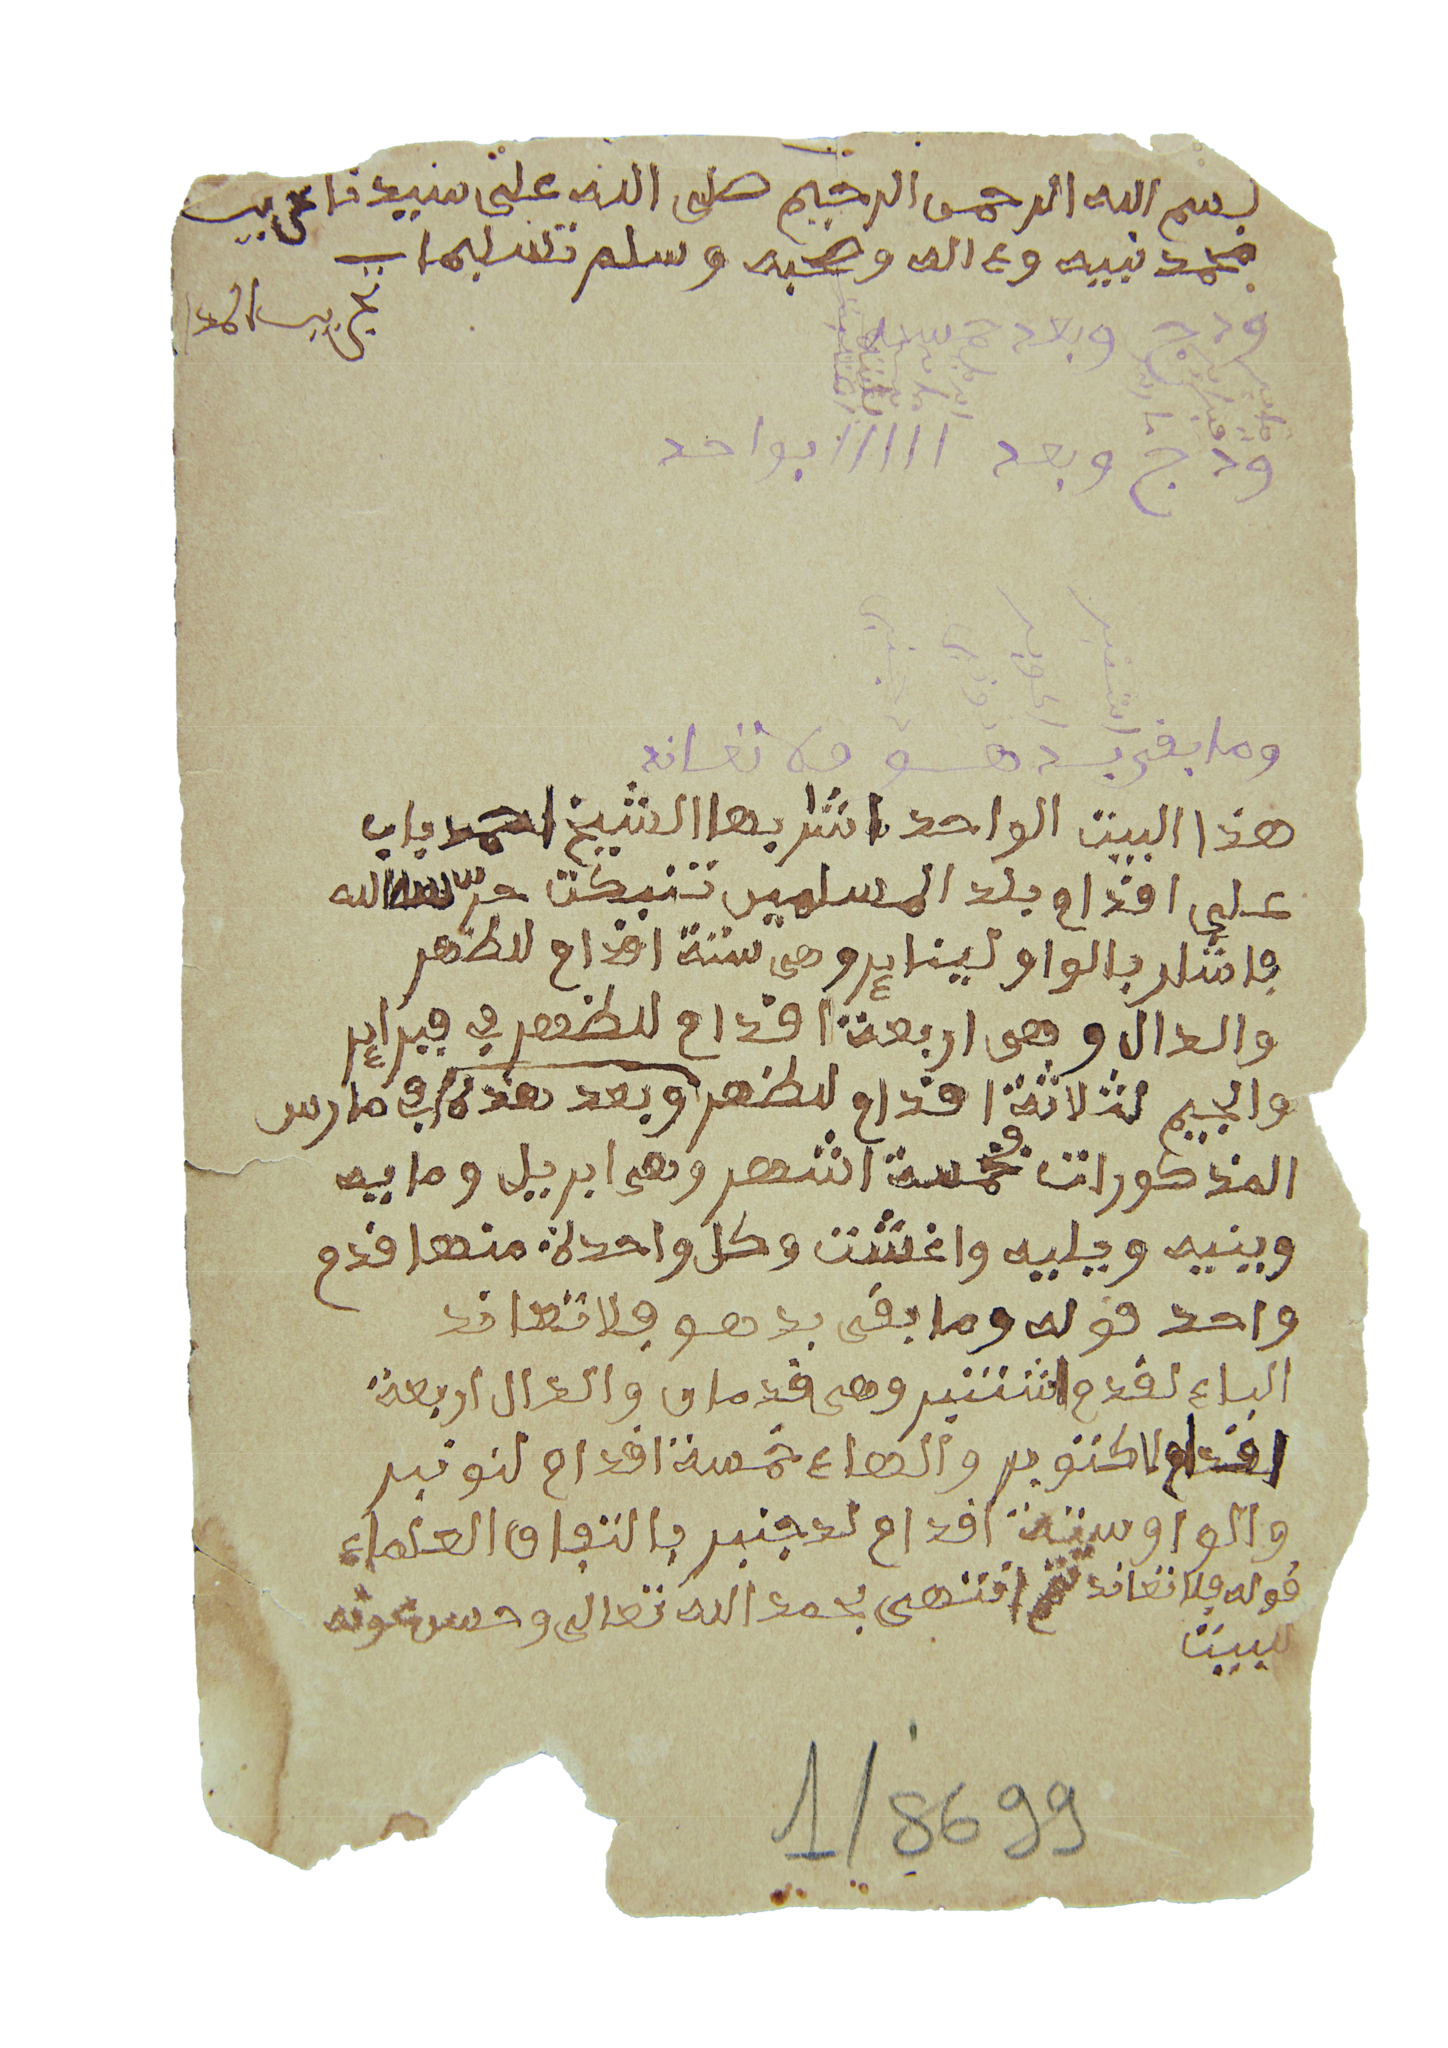 بسم الله الرحمن الرحيم صلى الله على سيدنا
محمد نبيه وءاله وصحبه وسلم تسليما
ودج وبعد خمسة
ودج وبعد ااااا بواحد
وما بقى بدهو فلا تعانه
هذا البيت الواحد اشار بها الشيخ احمد باب
على اقدام بلد المسلمين تنبكت حرسها الله
فاشار بالواو لينايروهى ستة اقدام للظهر
والدال وهى اربعة اقدام للظهر في فبراير
والجيم لثلاثة اقدام للظهر وبعد هذه في مارس
المذكورات وخمسة اشهر وهى ابريل ومايه
وينيه ويليه واغشت وكل واحدة منها قدم
واحد قوله وما بقى بدهو فلا تعاند
الباء لقدم اشتنبر وهى قدمان والدال اربعة
اقدام لاكتوبر والهاء خمسة اقدام لنونبر
والواو ستة اقدام لدجنبر باتفاق العلماء
قوله فلا تعاند انتهى بحمد الله تعالى وحسن عونه
للبيت
1/8699